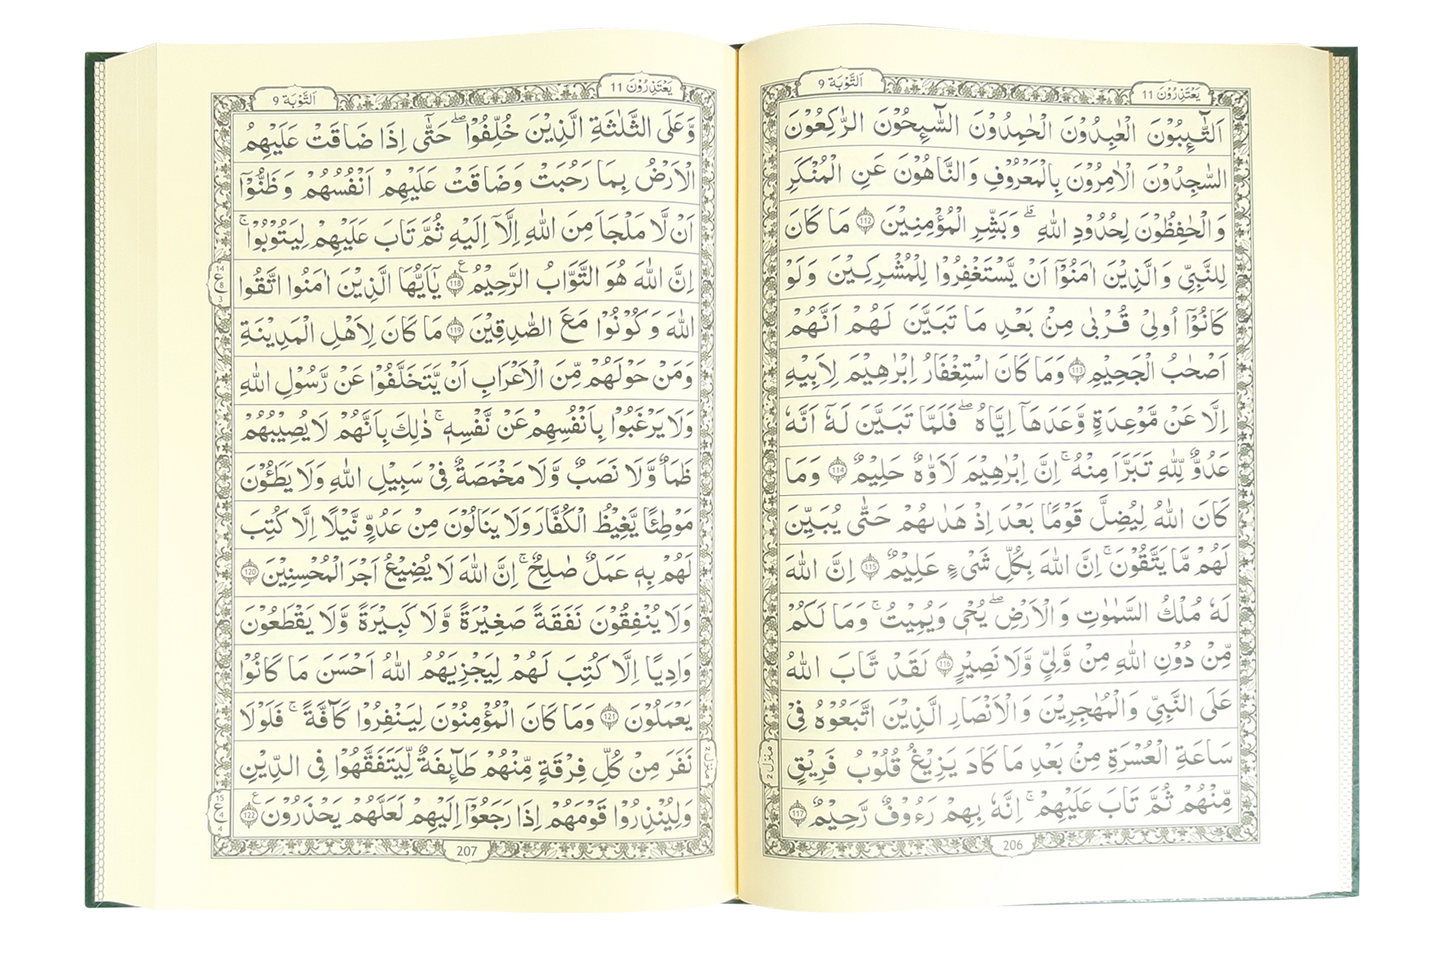 اَلتَّوْبَة 9
يَعْتَذِرُوْنَ 11
اَلتَّآئِبُوْنَ الْعٰبِدُوْنَ الْحٰمِدُوْنَ السَّآئِحُوْنَ الرّٰكِعُوْنَ
السّٰجِدُوْنَ الْاٰمِرُوْنَ بِالْمَعْرُوْفِ وَالنَّاهُوْنَ عَنِ الْمُنْكَرِ
وَالْحٰفِظُوْنَ لِحُدُوْدِ اللّٰهِ ؕ وَبَشِّرِ الْمُؤْمِنِيْنَ 112 مَا كَانَ
لِلنَّبِيِّ وَالَّذِيْنَ اٰمَنُوْۤا اَنْ يَّسْتَغْفِرُوْا لِلْمُشْرِكِيْنَ وَلَوْ
كَانُوْۤا اُولِيْ قُرْبٰى مِنْۢ بَعْدِ مَا تَبَيَّنَ لَهُمْ اَنَّهُمْ
اَصْحٰبُ الْجَحِيْمِ 113 وَمَا كَانَ اسْتِغْفَارُ اِبْرٰهِيْمَ لِاَبِيْهِ
اِلَّا عَنْ مَّوْعِدَةٍ وَّعَدَهَاۤ اِيَّاهُ ۖ فَلَمَّا تَبَيَّنَ لَهٗۤ اَنَّهٗ
عَدُوٌّ لِّلّٰهِ تَبَرَّاَ مِنْهُ ؕ اِنَّ اِبْرٰهِيْمَ لَاَوَّاهٌ حَلِيْمٌ 114 وَمَا
كَانَ اللّٰهُ لِيُضِلَّ قَوْمًاۢ بَعْدَ اِذْ هَدٰىهُمْ حَتّٰى يُبَيِّنَ
لَهُمْ مَّا يَتَّقُوْنَ ؕ اِنَّ اللّٰهَ بِكُلِّ شَيْءٍ عَلِيْمٌ 115 اِنَّ اللّٰهَ
لَهٗ مُلْكُ السَّمٰوٰتِ وَالْاَرْضِ ۖ يُحْيٖ وَيُمِيْتُ ؕ وَمَا لَكُمْ
مِّنْ دُوْنِ اللّٰهِ مِنْ وَّلِيٍّ وَّلَا نَصِيْرٍ 116 لَقَدْ تَّابَ اللّٰهُ
عَلَى النَّبِيِّ وَالْمُهٰجِرِيْنَ وَالْاَنْصَارِ الَّذِيْنَ اتَّبَعُوْهُ فِيْ
سَاعَةِ الْعُسْرَةِ مِنْۢ بَعْدِ مَا كَادَ يَزِيْغُ قُلُوْبُ فَرِيْقٍ
مِّنْهُمْ ثُمَّ تَابَ عَلَيْهِمْ ؕ اِنَّهٗ بِهِمْ رَءُوْفٌ رَّحِيْمٌ 117
منزل 2
206
اَلتَّوْبَة 9
يَعْتَذِرُوْنَ 11
وَّعَلَى الثَّلٰثَةِ الَّذِيْنَ خُلِّفُوْا ۖ حَتّٰۤى اِذَا ضَاقَتْ عَلَيْهِمُ
الْاَرْضُ بِمَا رَحُبَتْ وَضَاقَتْ عَلَيْهِمْ اَنْفُسُهُمْ وَظَنُّوْۤا
اَنْ لَّا مَلْجَاَ مِنَ اللّٰهِ اِلَّاۤ اِلَيْهِ ثُمَّ تَابَ عَلَيْهِمْ لِيَتُوْبُوْا ؕ
اِنَّ اللّٰهَ هُوَ التَّوَّابُ الرَّحِيْمُ 118 يٰۤاَيُّهَا الَّذِيْنَ اٰمَنُوا اتَّقُوا
اللّٰهَ وَكُوْنُوْا مَعَ الصّٰدِقِيْنَ 119 مَا كَانَ لِاَهْلِ الْمَدِيْنَةِ
وَمَنْ حَوْلَهُمْ مِّنَ الْاَعْرَابِ اَنْ يَّتَخَلَّفُوْا عَنْ رَّسُوْلِ اللّٰهِ
وَلَا يَرْغَبُوْا بِاَنْفُسِهِمْ عَنْ نَّفْسِهٖ ؕ ذٰلِكَ بِاَنَّهُمْ لَا يُصِيْبُهُمْ
ظَمَاٌ وَّلَا نَصَبٌ وَّلَا مَخْمَصَةٌ فِيْ سَبِيْلِ اللّٰهِ وَلَا يَطَـُٔوْنَ
مَوْطِئًا يَّغِيْظُ الْكُفَّارَ وَلَا يَنَالُوْنَ مِنْ عَدُوٍّ نَّيْلًا اِلَّا كُتِبَ
لَهُمْ بِهٖ عَمَلٌ صٰلِحٌ ؕ اِنَّ اللّٰهَ لَا يُضِيْعُ اَجْرَ الْمُحْسِنِيْنَ 120
وَلَا يُنْفِقُوْنَ نَفَقَةً صَغِيْرَةً وَّلَا كَبِيْرَةً وَّلَا يَقْطَعُوْنَ
وَادِيًا اِلَّا كُتِبَ لَهُمْ لِيَجْزِيَهُمُ اللّٰهُ اَحْسَنَ مَا كَانُوْا
يَعْمَلُوْنَ 121 وَمَا كَانَ الْمُؤْمِنُوْنَ لِيَنْفِرُوْا كَآفَّةً ؕ فَلَوْلَا
نَفَرَ مِنْ كُلِّ فِرْقَةٍ مِّنْهُمْ طَآئِفَةٌ لِّيَتَفَقَّهُوْا فِي الدِّيْنِ
وَلِيُنْذِرُوْا قَوْمَهُمْ اِذَا رَجَعُوْۤا اِلَيْهِمْ لَعَلَّهُمْ يَحْذَرُوْنَ 122
14 ع 8 3
15 ع 4 4
منزل 2
207